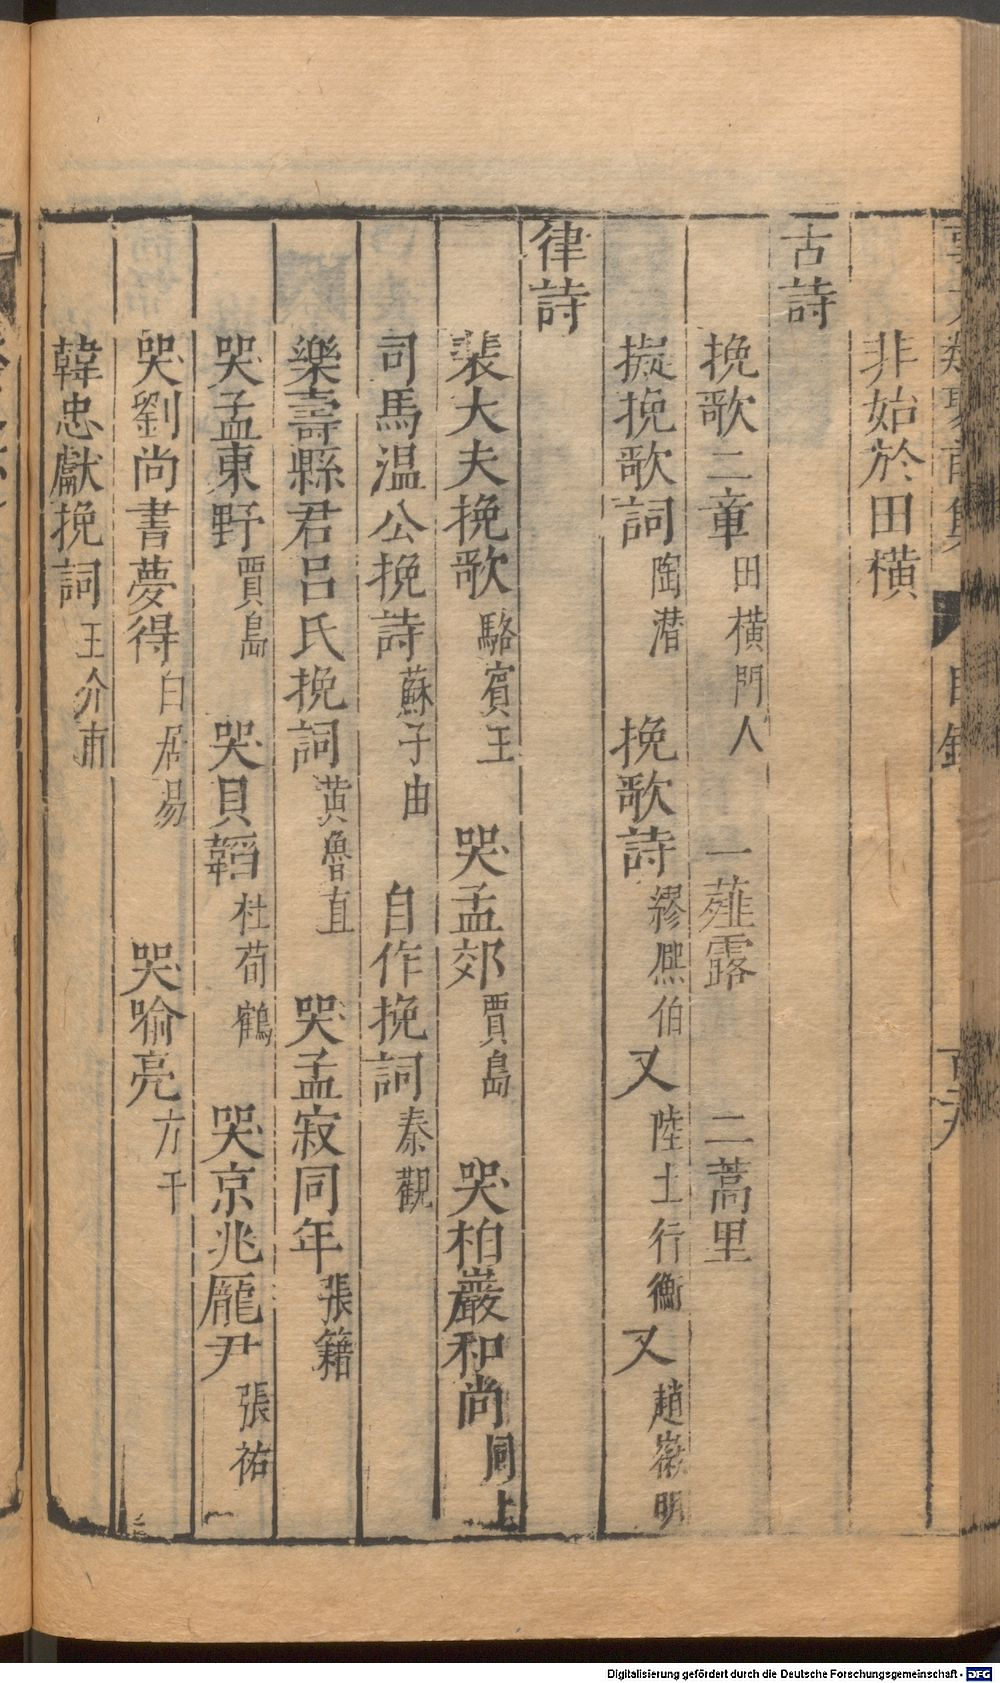 事文類聚前集 目錄
非始於田横
古詩
挽歌二章 田横門人 一薤露 二蒿里
擬挽歌詞 陶潜 挽歌詩 繆熈伯 又 陸士行衡 又 趙徽明
律詩
裴大夫挽歌 駱賓王 哭孟郊 賈島 哭柏巖和尚 同上
司馬温公挽詩 蘇子由 自作挽詞 秦觀
樂壽縣君吕氏挽詞 黄魯直 哭孟寂同年 張籍
哭孟東野 賈島 哭貝韜 杜荀鶴 哭京兆龐尹 張祐
哭劉尚書夢得 白居易 哭喻亮 方干
韓忠獻挽詞 王介甫
Digitalisierung gefördert durch die Deutsche Forschungsgemeinschaft - DFG